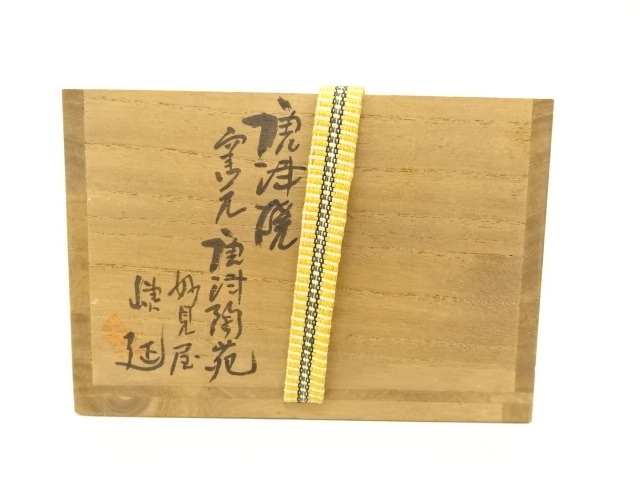 唐津焼
窯元 唐津陶苑
妙見屋
延